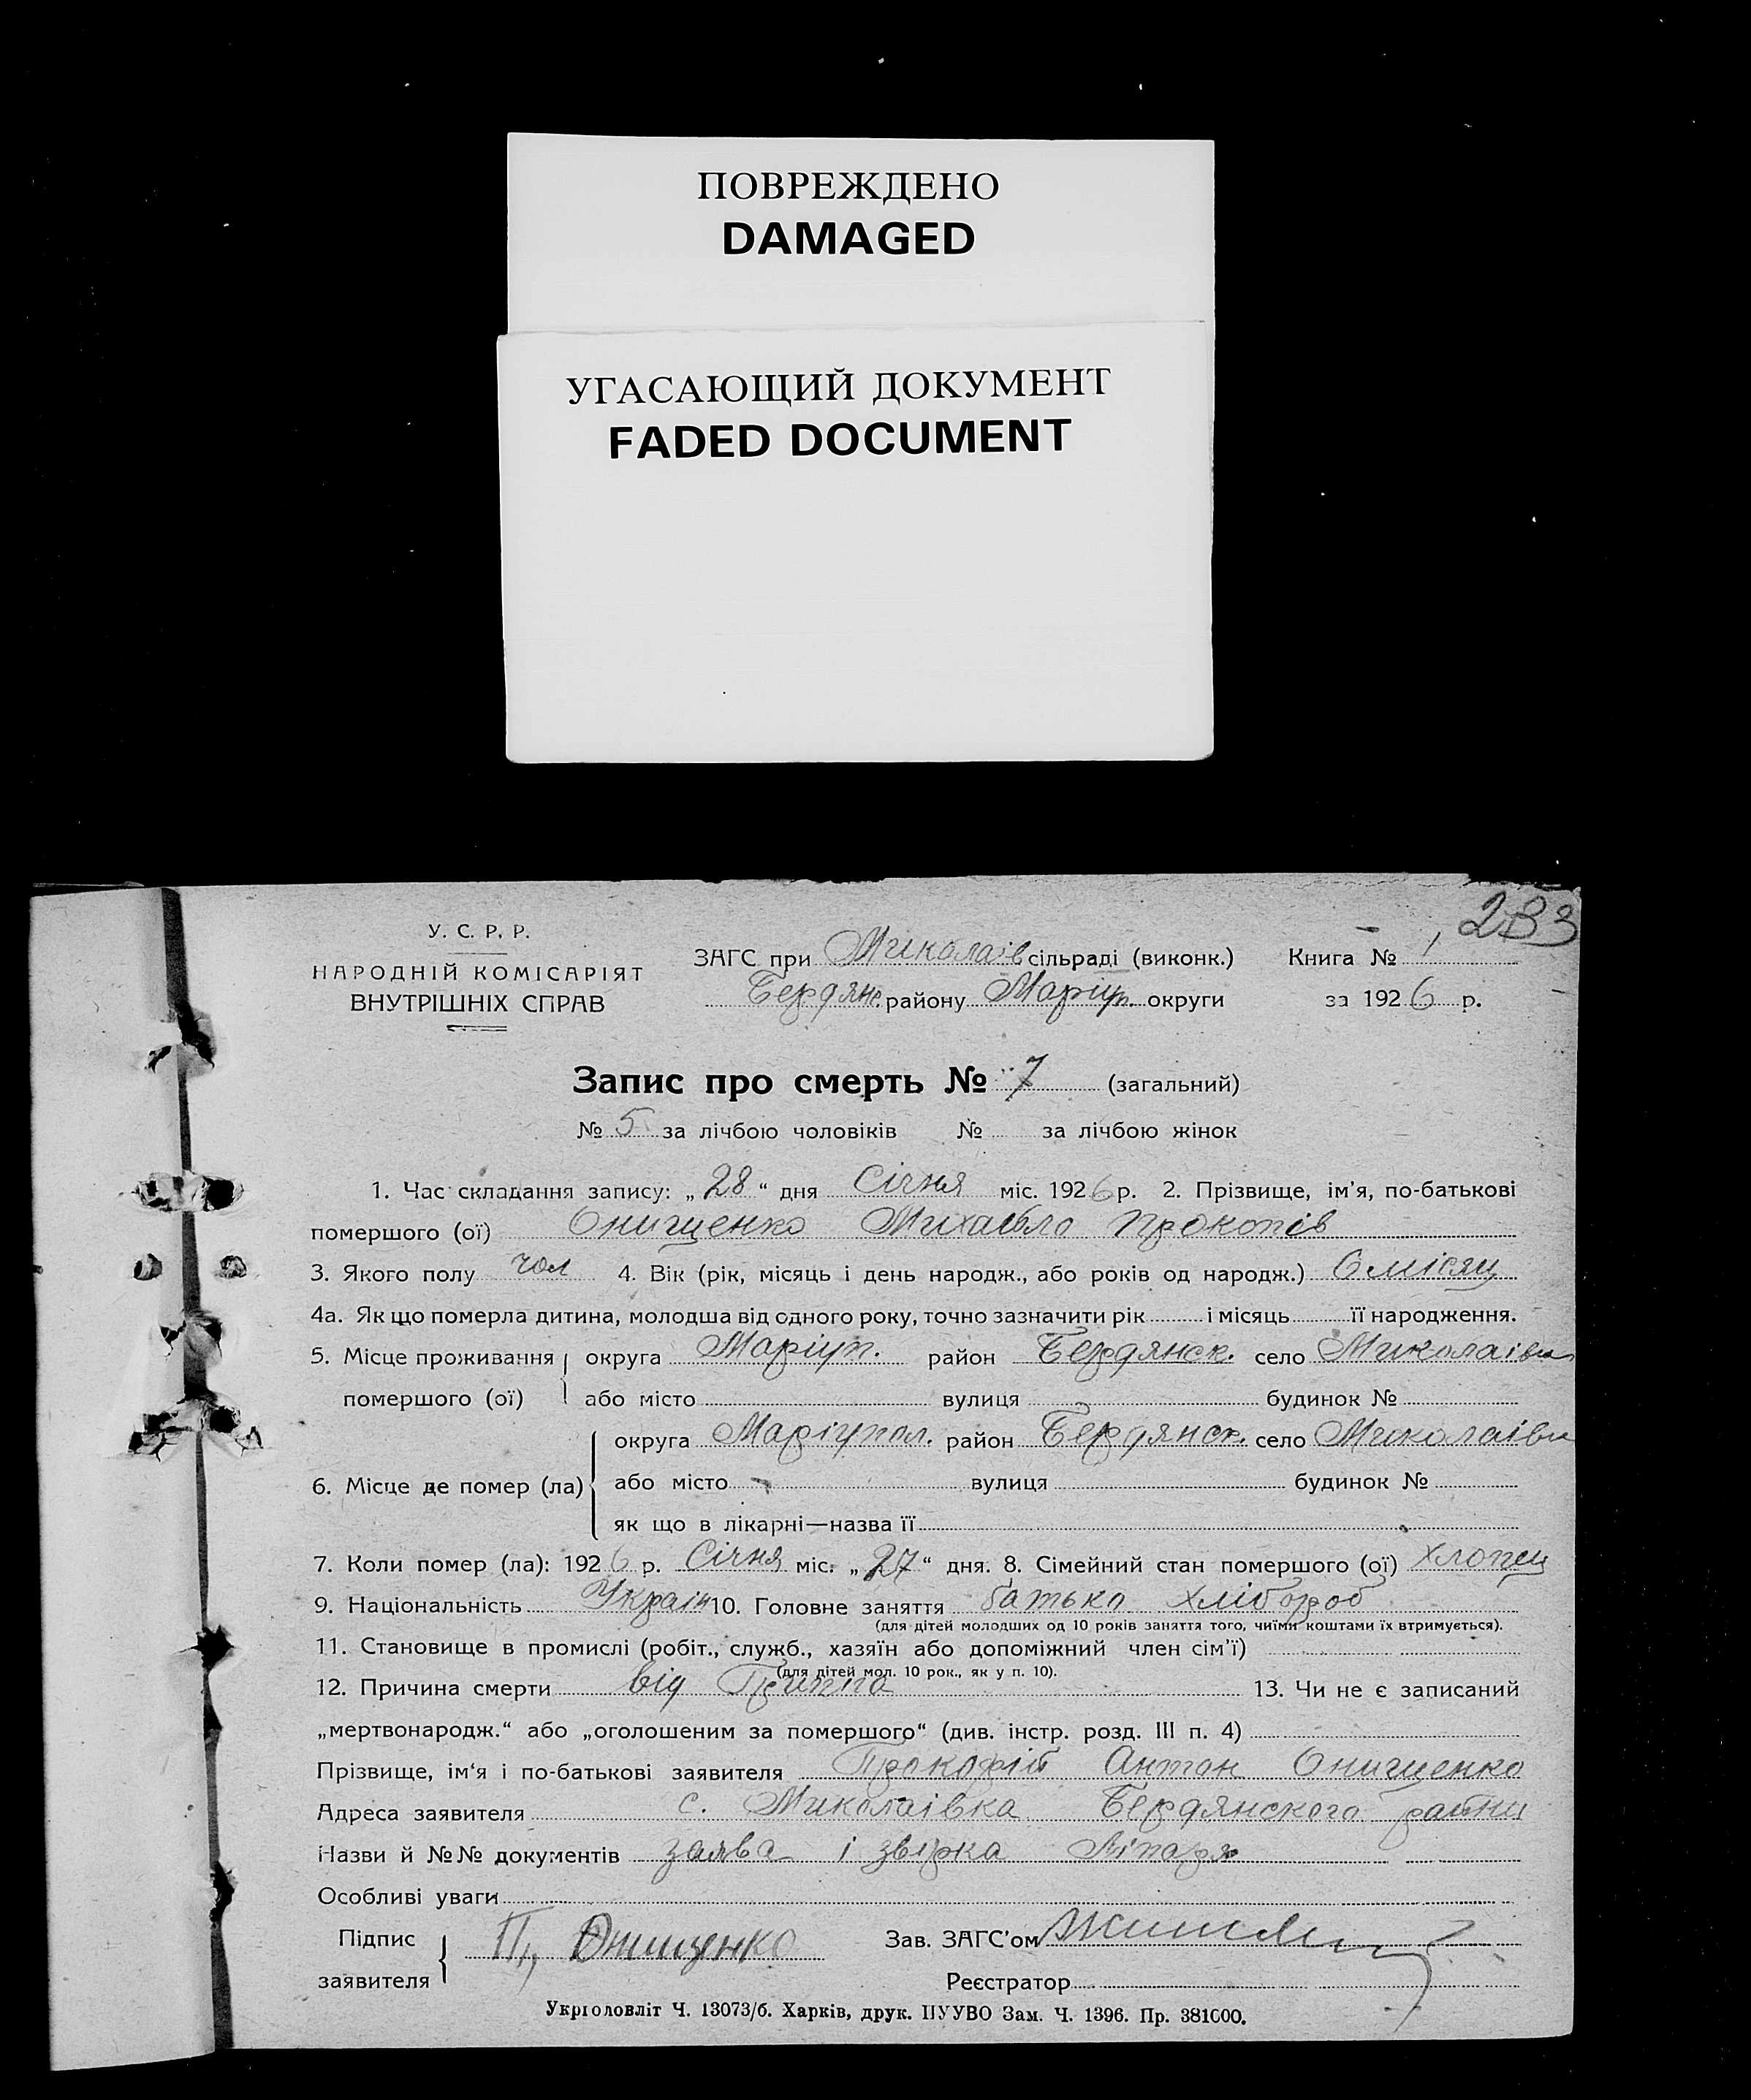 ПОВРЕЖДЕНО
DAMAGED
УГАСАЮЩИЙ ДОКУМЕНТ
FADED DOCUMENT
233
У. С. Р. Р.
НАРОДНІЙ КОМІСАРІЯТ
ВНУТРІШНІХ СПРАВ
ЗАГС при Миколаїв сільраді (виконк.) Книга № 1
Бердянс. району Маріуп. округи за 1926 р.
Запис про смерть № 7 (загальний)
№ 5 за лічбою чоловіків № за лічбою жінок
1. Час складання запису: „28“ дня Січня міс. 1926 р. 2. Прізвище, ім’я, по-батькові
помершого (ої) Онищенко Михайло Прокопів
3. Якого полу чол 4. Вік (рік, місяць і день народж., або років од народж.) 6 місяц
4а. Як що померла дитина, молодша від одного року, точно зазначити рік і місяць її народження.
5. Місце проживання помершого (ої) округа Маріуп. район Бердянск. село Миколаівка
або місто вулиця будинок №
6. Місце де помер (ла) округа Маріупол. район Бердянск. село Миколаівка
або місто вулиця будинок №
як що в лікарні—назва її
7. Коли помер (ла): 1926 р. Січня міс. „27“ дня. 8. Сімейний стан помершого (ої) хлопец
9. Національність Україн 10. Головне заняття батько хлібороб
(для дітей молодших од 10 років заняття того, чиїми коштами їх втримується).
11. Становище в промислі (робіт., служб., хазяїн або допоміжний член сім’ї)
(для дітей мол. 10 рок., як у п. 10).
12. Причина смерти від Гриппа 13. Чи не є записаний
„мертвонародж.“ або „оголошеним за помершого“ (див. інстр. розд. III п. 4)
Прізвище, ім‘я і по-батькові заявителя Прокофій Антон Онищенко
Адреса заявителя с. Миколаівка Бердянского району
Назви й №№ документів заява і звірка Ліпаря
Особливі уваги
Підпис заявителя П, Онищенко Зав. ЗАГС’ом
Реєстратор
Укрголовліт Ч. 13073/б. Харків, друк. ПУУВО Зам. Ч. 1396. Пр. 381000.